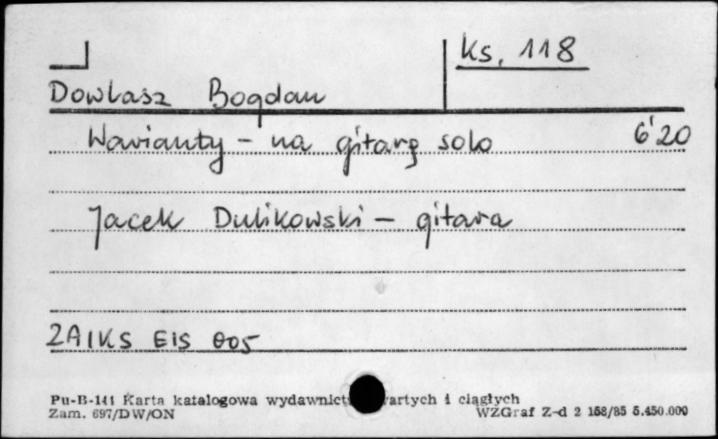 Ks. 118
Dowlasz Bogdan
Warianty - na gitarę solo 6'20
Jacek Dulikowski - gitara
ZAIKS EIS 005
Pu-B-141 Karta katalogowa wydawnict i ciągłych
Zam. 697/DW/ON WZGraf Z-d 2 158/85 5.450.000